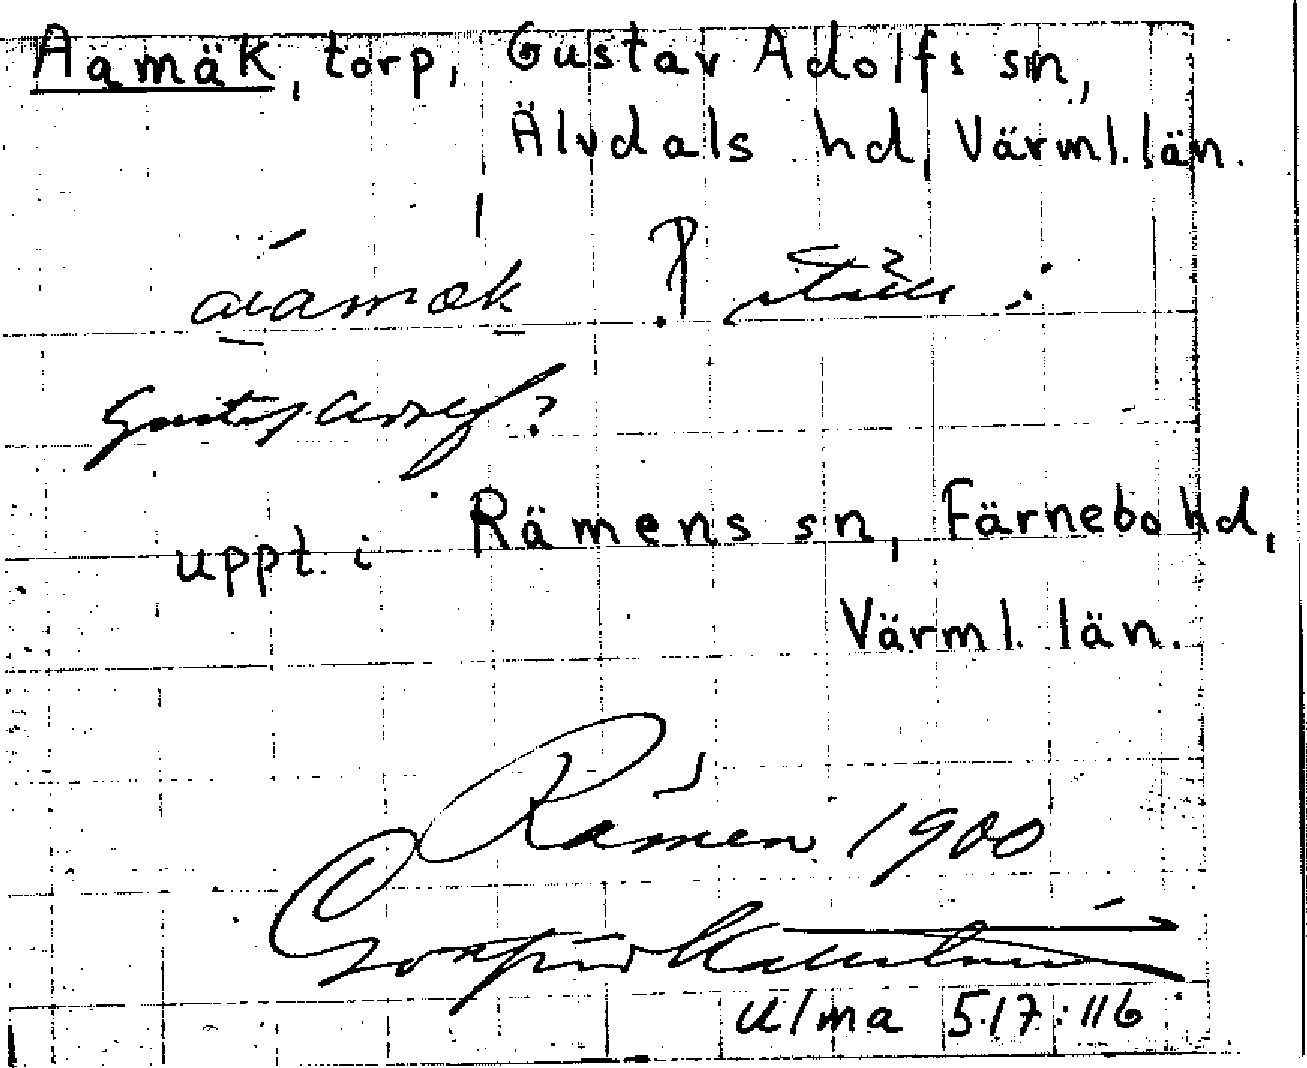 Aämäk, torp, Gustav Adolfs sn,
Älvdals hd, Värml. län.
Gustaf Adolf?
uppt. i Rämens sn, Färnebo hd,
Värml. län.
Rämen 1900
Ulma 517:116